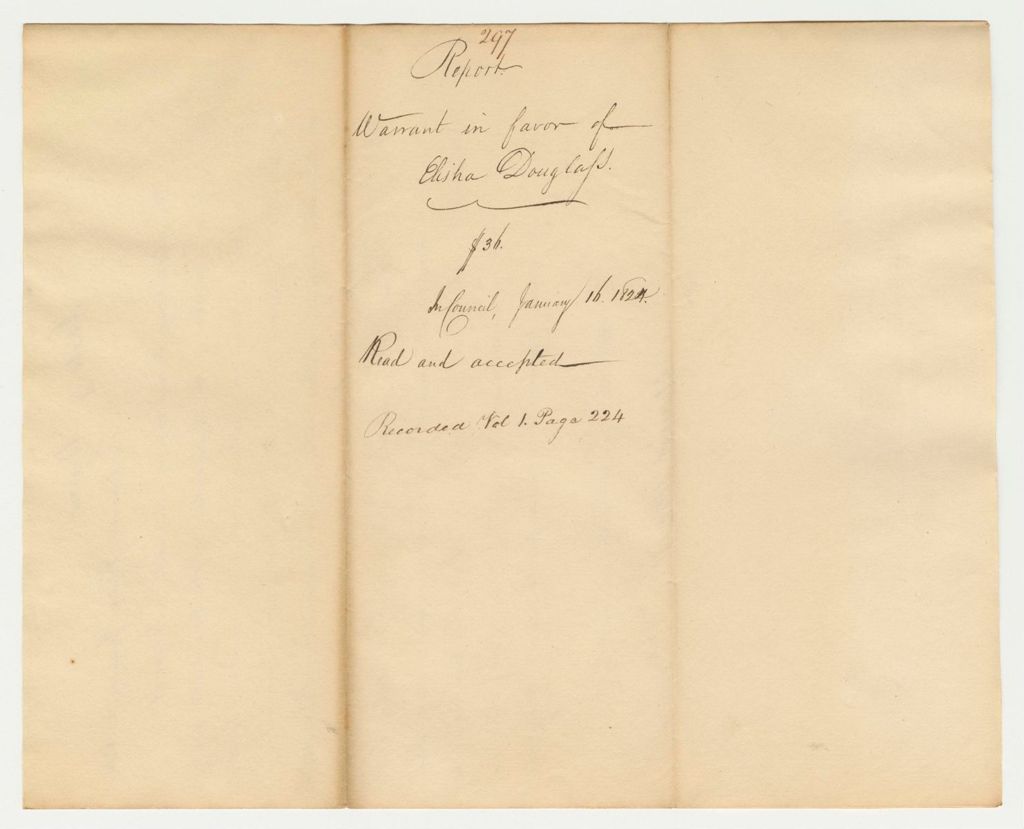 297
Report.
Warrant in favor of
Elisha Douglass.
$36.
In Council, January 16. 1824.
Read and accepted
Recorded Vol 1. Page 224